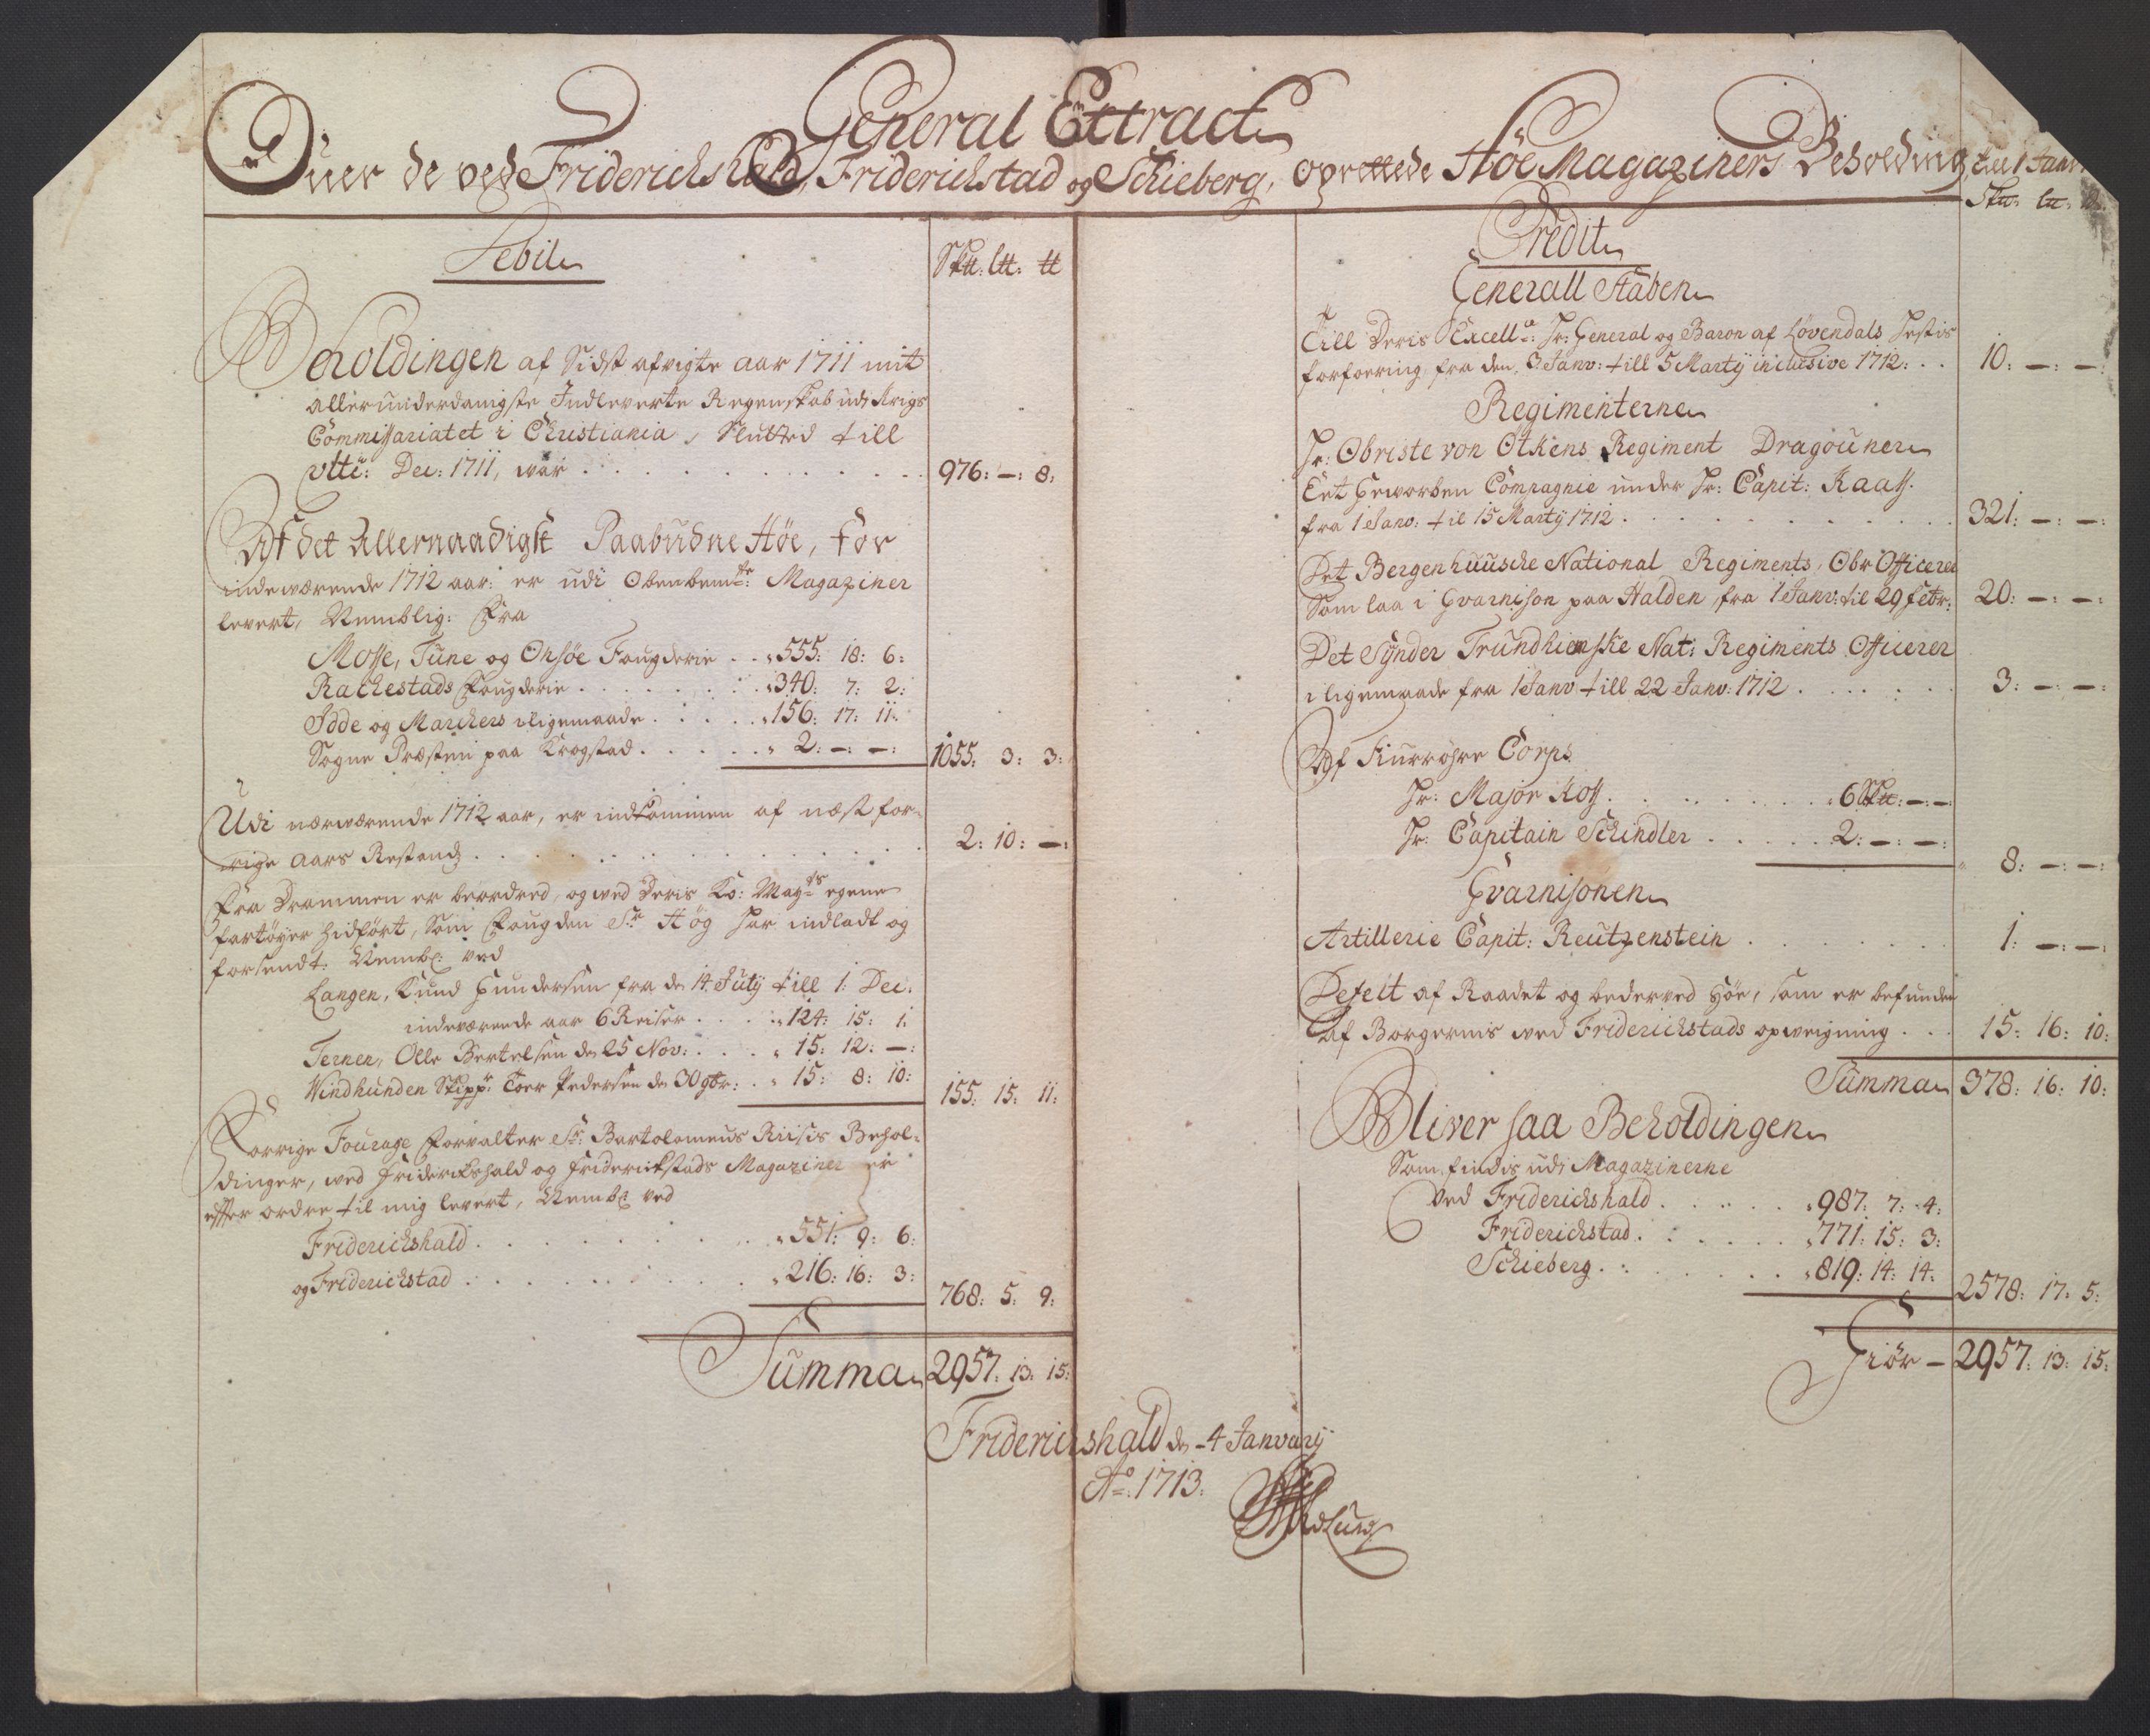 General Extract
Ofver de ved Friderichshald, Friderichstad og Schieberg, oprettede Höe Magaziners Beholding, till 1 Janv
Debit
Sktt: ltt: tt
Beholdingen af Sidst afvigte aar 1711 mit
allerunderdanigste Indleverte Regenskab udi Krigs
Commissariatet i Christiania, Slutted till
ulti: Dec: 1711, war . . . 976: –: 8:
Af det Allernaadigst Paabudne Höe, for
indeværende 1712 aar: er udi Obenbemte: Magaziner
levert, Nemblig: Fra
Mosse, Tune og Onsöe Fougderie . . 555: 18: 6:
Rackestads Fougderie . . . 340: 7: 2:
Idde og Marchers iligemaade . . . 156: 17: 11:
Sogne Præsten paa Krogstad . . . 2: –: –:
1055: 3: 3:
Udi nærværende 1712 aar, er indkommen af næst for-
rige Aars Restand . . . 2: 10: –:
Fra Drammen er beordred, og med Deris Ko: Mayts egene
fartöyer hidfört, Som Fougden Sr Hög har indladt og
forsendt: Nembl: ved
Langen, Knud Gundersen fra d. 14 July till 1: Dec.
indeværende aar 6 Reiser . . . 124: 15: 1.
Ternen, Olle Bertelsen d. 25 Nov: . . . 15: 12: –:
Windhunden Skippr: Toer Pedersen d. 30 9br: . . 15: 8: 10:
155: 15: 11:
Forrige Fourage Forvalter Sr: Bartolomeus Riisis Behol-
dinger, ved Friderichshald og Friderichstads Magaziner er
effter ordre til mig levert, Nembl: ved
Friderichshald . . . 551: 9: 6:
og Friderichstad . . . 216: 16: 3:
768: 5: 9:
Summa 2957: 13: 15:
Sktt: ltt: tt.
Credit
Generall Staben
Till Deris Excellce: Hr: General og Baron af Lövendals Hestis
forfoering, fra den 3 Janv: till 5 Marty inclusive 1712: . . 10: –: –:
Regimenterne
Hr: Obriste von Ötkens Regiment Dragouner
Eet Geworben Compagnie under Hr: Capit: Kaass.
fra 1 Janv: til 15 Marty 1712 . . . 321: –: –:
Det Bergenhuusche National Regiments, Obr Officerer
Som laa i Gvarnison paa Halden, fra 1 Janv: til 29 febr: 20: –: –:
Det Synder Trundhiemske Nat: Regiments Officerer
iligemaade fra 1 Janv till 22 Janv: 1712 . . . 3: –: –:
Af Fiurröhre Corps
Hr: Major Koss . . . 6 Sktt: –: –:
Hr: Capitain Schindler . . . 2: –: –:
8: –: –:
Gvarnisonen
Artillerie Capit: Reutzenstein . . . 1: –: –:
Defect af Raadet og bederved Höe, som er befunden
af Borgernis ved Friderichstads opveigning . . . 15: 16: 10:
Summa 378: 16: 10:
Bliver saa Beholdingen
Som findis udi Magazinerne
ved Friderichshald . . . 987: 7: 4:
Friderichstad . . . 771: 15: 3:
Schieberg . . . 819: 14: 14:
2578: 17: 5:
Giör – 2957: 13: 15:
Friderichshald d. 4 January
Ao: 1713.